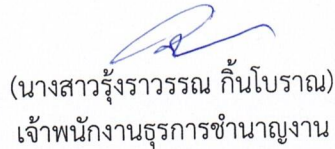 (นางสาวรุ้งราวรรณ กิ้นโบราณ)
เจ้าพนักงานธุรการชำนาญงาน